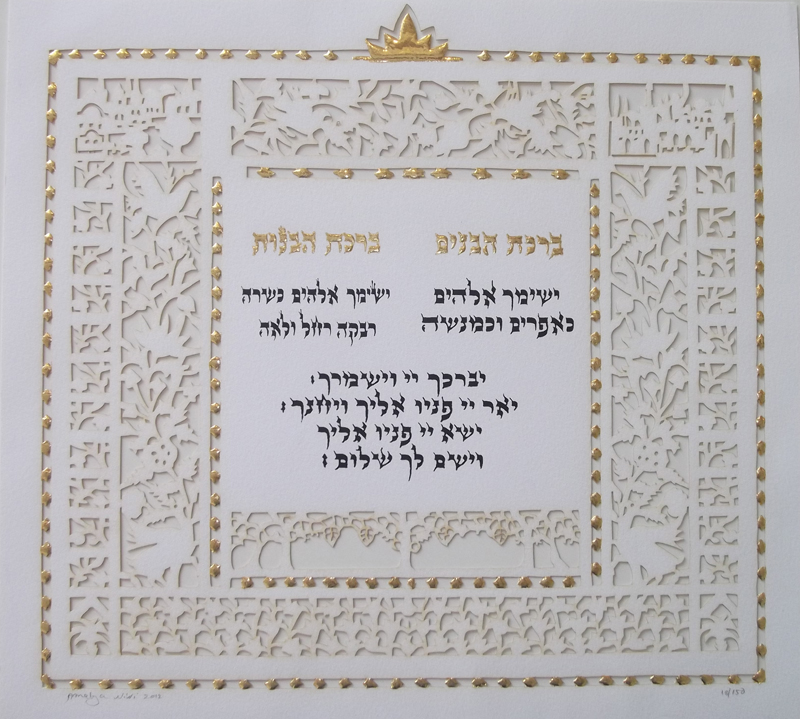 ברכת הבנים
ישימך אלהים
כאפרים וכמנשה
ברכת הבנות
ישימך אלהים כשרה
רבקה רחל ולאה
יברכך יי וישמרך:
יאר יי פניו אליך ויחנך:
ישא יי פניו אליך
וישם לך שלום:
10/150